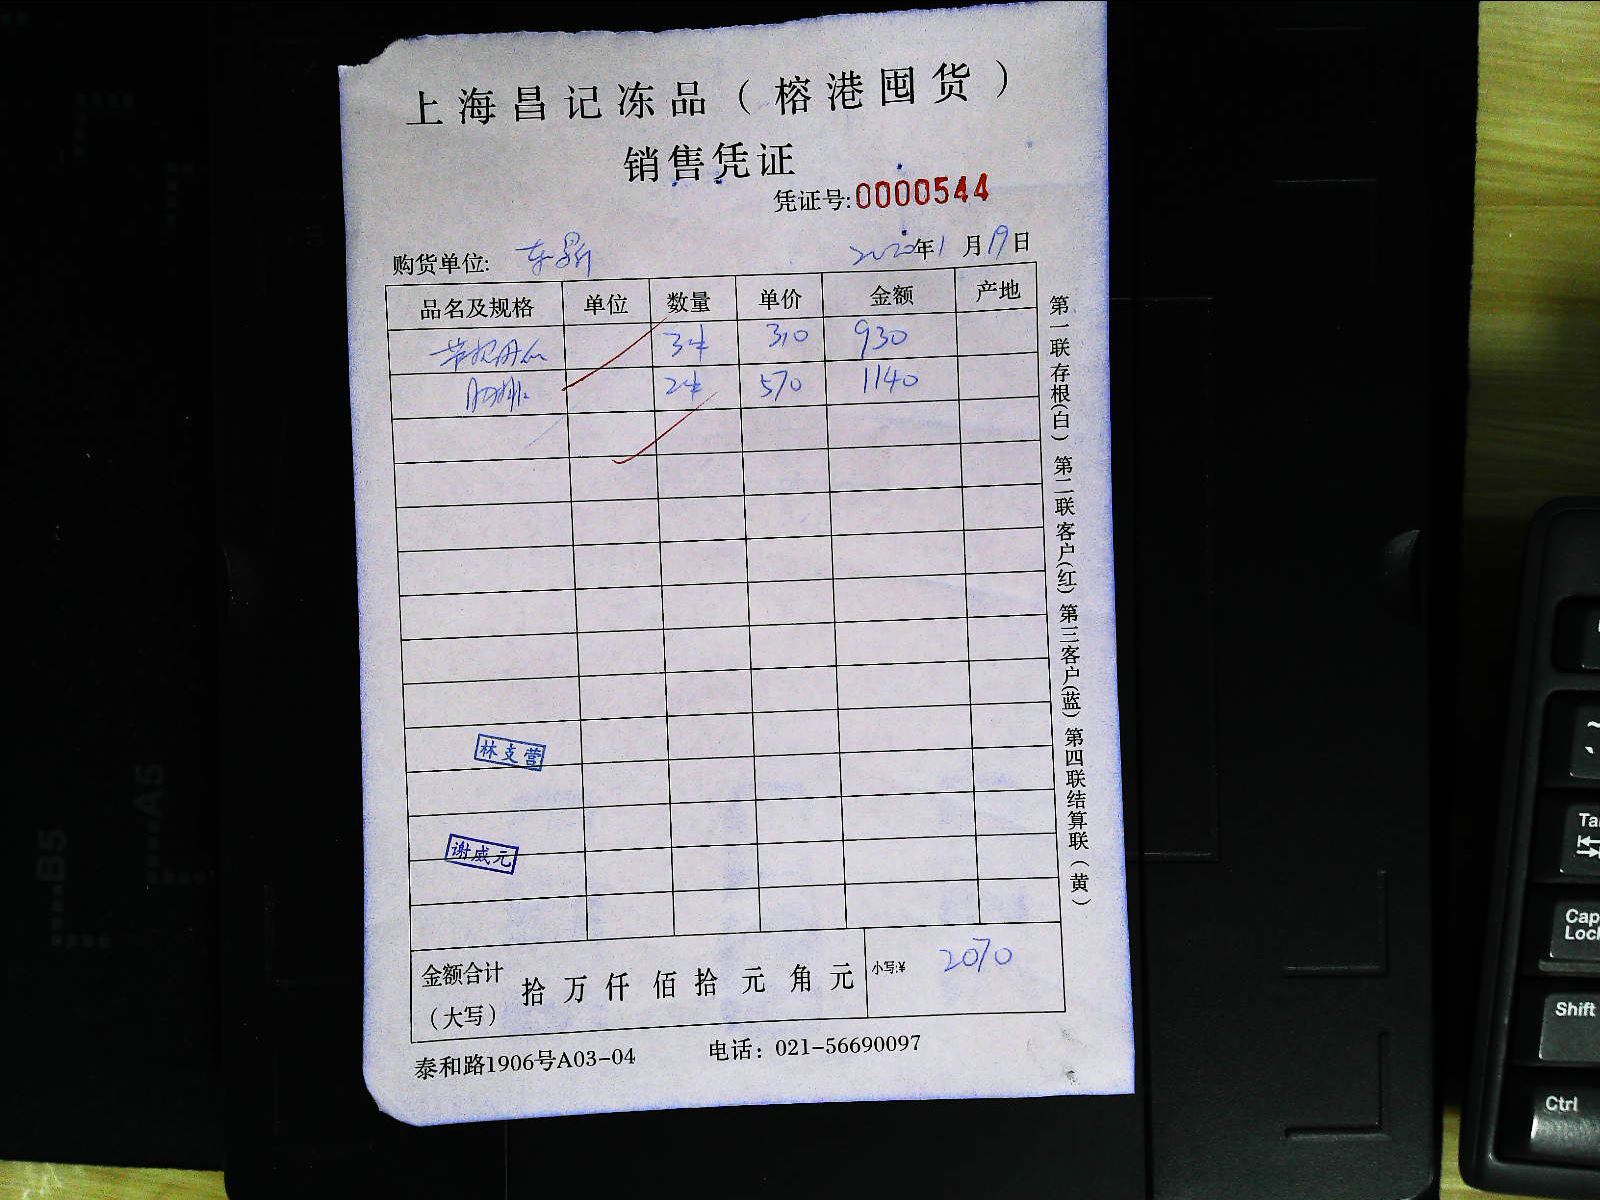 上海昌记冻品（榕港囤货）
销售凭证
凭证号:0000544
购货单位: 东鼎 2020年1月19日
品名及规格 单位 数量 单价 金额 产地
3件 310 930
2件 570 1140
林支营
谢威元
金额合计（大写） 拾 万 仟 佰 拾 元 角 元 小写:¥ 2070
泰和路1906号A03-04 电话：021-56690097
第一联存根（白）第二联客户（红）第三客户（蓝）第四联结算联（黄）
B5
A5
Tab
Caps Lock
Shift
Ctrl